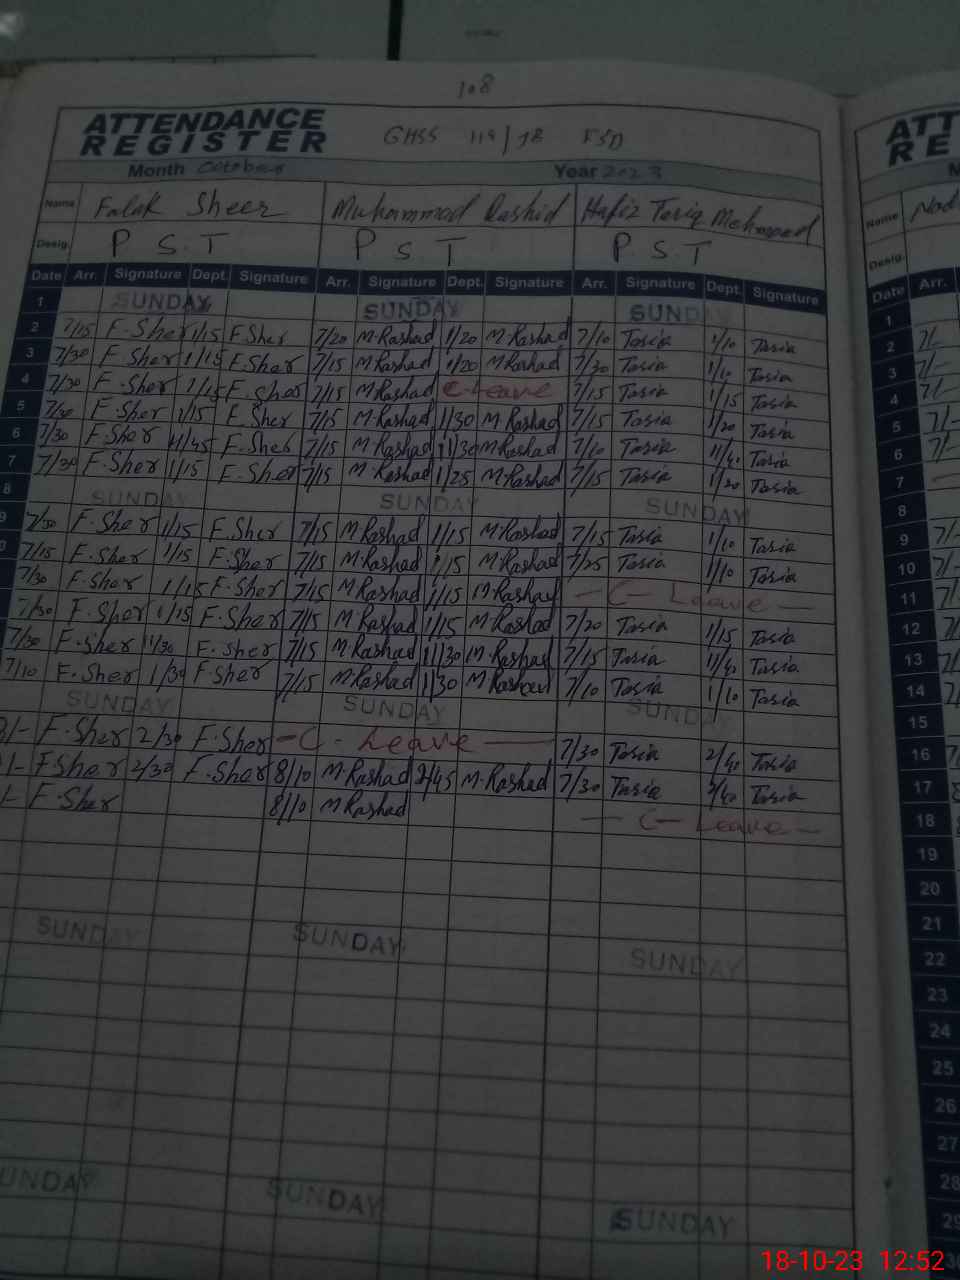 108
ATTENDANCE
REGISTER
GHSS 119/18 FSD
Month October Year 2023
Name Falak Sheer Muhammad Rashid Hafiz Tariq Mehmood
Desig. P S T P S T P S T
Date Arr. Signature Dept. Signature Arr. Signature Dept. Signature Arr. Signature Dept. Signature
1 SUNDAY SUNDAY SUNDAY
2 7/15 F.Sher 1/15 F.Sher 7/20 M.Rashad 1/20 M.Rashad 7/10 Tasia 1/10 Tasia
3 7/30 F.Sher 1/15 F.Sher 7/15 M.Rashad 1/20 M.Rashad 7/30 Tasia 1/10 Tasia
4 7/30 F.Sher 1/15 F.Sher 7/15 M.Rashad C-Leave 7/15 Tasia 1/15 Tasia
5 7/30 F.Sher 1/15 F.Sher 7/15 M.Rashad 1/30 M.Rashad 7/15 Tasia 1/20 Tasia
6 7/30 F.Sher 11/45 F.Sher 7/15 M.Rashad 11/30 M.Rashad 7/10 Tasia 11/40 Tasia
7 7/30 F.Sher 1/15 F.Sher 7/15 M.Rashad 1/25 M.Rashad 7/15 Tasia 1/20 Tasia
8 SUNDAY SUNDAY SUNDAY
9 7/30 F.Sher 1/15 F.Sher 7/15 M.Rashad 1/15 M.Rashad 7/15 Tasia 1/10 Tasia
7/15 F.Sher 1/15 F.Sher 7/15 M.Rashad 1/15 M.Rashad 7/25 Tasia 1/10 Tasia
7/30 F.Sher 1/15 F.Sher 7/15 M.Rashad 1/15 M.Rashad - C - Leave -
7/30 F.Sher 1/15 F.Sher 7/15 M.Rashad 1/15 M.Rashad 7/20 Tasia 1/15 Tasia
7/30 F.Sher 11/30 F.Sher 7/15 M.Rashad 11/30 M.Rashad 7/15 Tasia 11/40 Tasia
7/10 F.Sher 1/30 F.Sher 7/15 M.Rashad 1/30 M.Rashad 7/10 Tasia 1/10 Tasia
SUNDAY SUNDAY SUNDAY
8/- F.Sher 2/30 F.Sher - C - Leave - 7/30 Tasia 2/40 Tasia
/- F.Sher 2/30 F.Sher 8/10 M.Rashad 2/45 M.Rashad 7/30 Tasia 2/40 Tasia
/- F.Sher 8/10 M.Rashad - C - Leave -
SUNDAY SUNDAY SUNDAY
SUNDAY SUNDAY SUNDAY
ATT
RE
Name
Desig.
Date Arr.
1
2 7/-
3 7/-
4 7/-
5 7/-
6 7/-
7
8
9
10
11
12
13
14
15
16
17
18
19
20
21
22
23
24
25
26
27
28
29
18-10-23 12:52